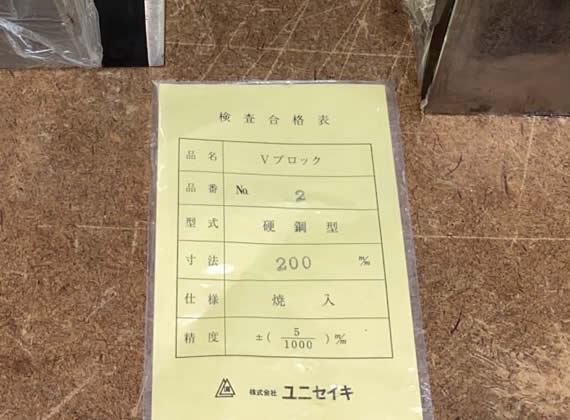 検査合格表
品名 Vブロック
品番 № 2
型式 硬鋼型
寸法 200 m/m
仕様 焼入
精度 ±( 5/1000 ) m/m
株式会社 ユニセイキ